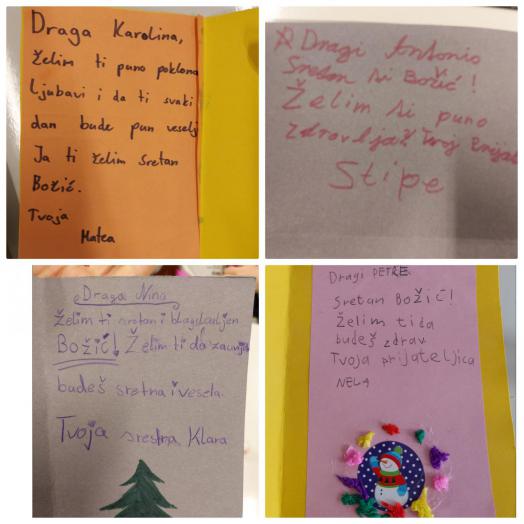 Draga Karolina,
Želim ti puno poklona
ljubavi i da ti svaki
dan bude pun veselj
Ja ti želim sretan
Božić.
Tvoja
Matea
Dragi Antonio
Sretan ti Božić!
Želim ti puno
zdravlja! Tvoj
Stipe
Draga Nina
Želim ti sretan i blagoslovljen
Božić! Želim ti da zauvijek
budeš sretna i vesela.
Tvoja sretna Klara
Dragi PETRE.
Sretan Božić!
Želim ti da
budeš zdrav
Tvoja prijateljica
NELA